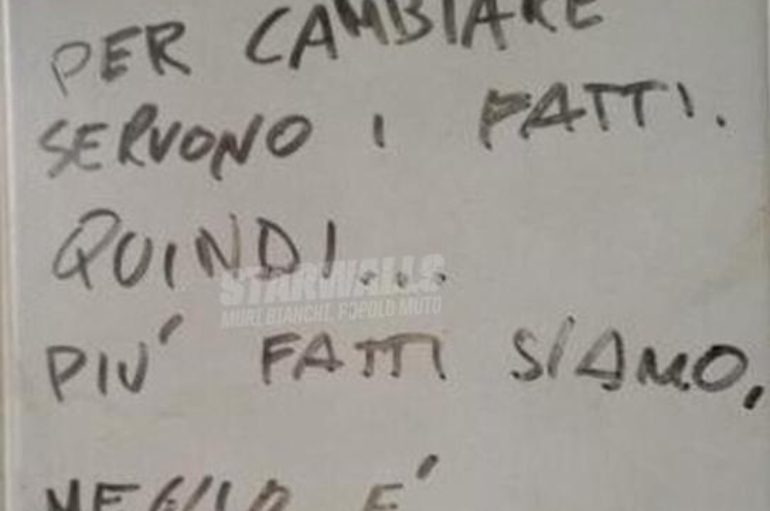 PER CAMBIARE
SERVONO I FATTI.
QUINDI...
STARWALLS
MURI BIANCHI, POPOLO MUTO
PIU' FATTI SIAMO,
MEGLIO E'